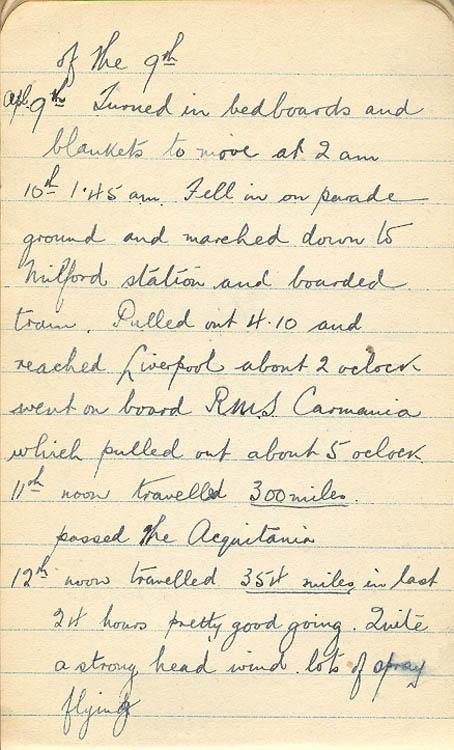 of the 9th
Apl. 9th Turned in bedboards and
blankets to move at 2 am
10th 1.45 am. Fell in on parade
ground and marched down to
Milford station and boarded
train. Pulled out 4.10 and
reached Liverpool about 2 oclock
went on board RMS Carmania
which pulled out about 5 oclock.
11th noon travelled 300 miles.
passed the Acquitania
12th noon travelled 354 miles in last
24 hours pretty good going. Quite
a strong head wind. lots of spray
flying